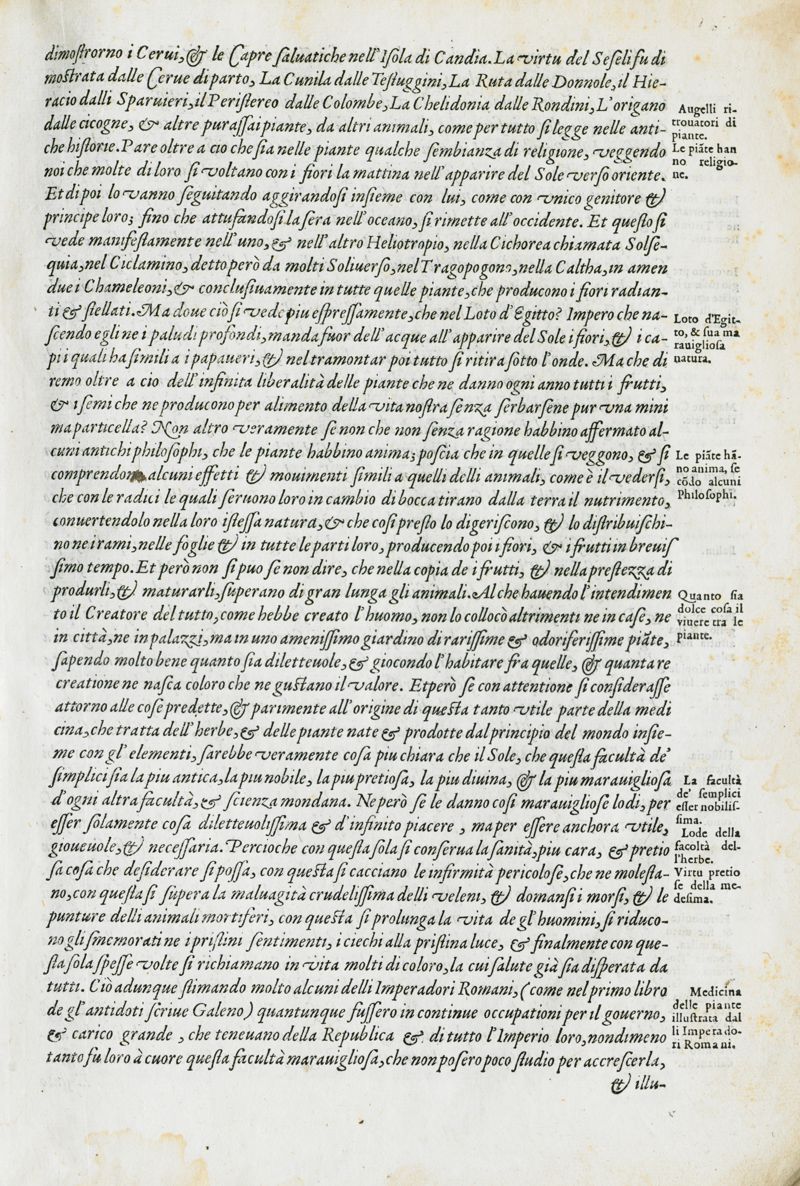 dimostrorno i Cerui, & le Capre saluatiche nell'Isola di Candia. La virtu del Seseli fu di
mostrata dalle Cerue di parto, La Cunila dalle Testuggini, La Ruta dalle Donnole, il Hie-
racio dalli Sparuieri, il Peristereo dalle Colombe, La Chelidonia dalle Rondini, L'origano
Augelli ri-
dalle cicogne, & altre pur assai piante, da altri animali, come per tutto si legge nelle anti-
trouatori di
piante.
che historie. Pare oltre a cio che sia nelle piante qualche sembianza di religione, veggendo
Le piāte han
noi che molte di loro si voltano con i fiori la mattina nell'apparire del Sole verso oriente.
no religio-
ne.
Et di poi lo vanno seguitando aggirandosi insieme con lui, come con vnico genitore &
principe loro; fino che attufandosi la sera nell'oceano, si rimette all'occidente. Et questo si
vede manifestamente nell'uno, & nell'altro Heliotropio, nella Cichorea chiamata Solse-
quia, nel Ciclamino, detto però da molti Soliuerso, nel Tragopogono, nella Caltha, in amen
due i Chameleoni, & conclusiuamente in tutte quelle piante, che producono i fiori radian-
ti & stellati. Ma doue ciò si vede piu espressamente, che nel Loto d'Egitto? Impero che na-
Loto d'Egit-
scendo egli ne i paludi profondi, manda fuor dell'acque all'apparire del Sole i fiori, & i ca-
to, & sua ma
rauigliosa
pi i quali ha simili a i papaueri, & nel tramontar poi tutto si ritira sotto l'onde. Ma che di
natura.
remo oltre a cio dell'infinita liberalità delle piante che ne danno ogni anno tutti i frutti,
& i semi che ne producono per alimento della vita nostra senza serbarsene pur vna mini
ma particella? Non altro veramente se non che non senza ragione habbino affermato al-
cuni antichi philosophi, che le piante habbino anima; poscia che in quelle si veggono, & si
Le piāte hā-
comprendono alcuni effetti & mouimenti simili a quelli delli animali, come è il vedersi,
no anima, se
cōdo alcuni
che con le radici le quali seruono loro in cambio di bocca tirano dalla terra il nutrimento,
Philosophi.
conuertendolo nella loro istessa natura, & che cosi presto lo digeriscono, & lo distribuischi-
no ne i rami, nelle foglie & in tutte le parti loro, producendo poi i fiori, & i frutti in breuis
simo tempo. Et però non si puo se non dire, che nella copia de i frutti, & nella prestezza di
produrli, & maturarli, superano di gran lunga gli animali. Al che hauendo l'intendimen
Quanto sia
to il Creatore del tutto, come hebbe creato l'huomo, non lo collocò altrimenti ne in case, ne
dolce cosa il
viuere tra le
in città, ne in palazzi, ma in uno amenissimo giardino di rarissime & odoriferissime piāte,
piante.
sapendo molto bene quanto sia diletteuole, & giocondo l'habitare fra quelle, & quanta re
creatione ne nasca coloro che ne gustano il valore. Et però se con attentione si considerasse
attorno alle cose predette, & parimente all'origine di questa tanto vtile parte della medi
cina, che tratta dell'herbe, & delle piante nate & prodotte dal principio del mondo insie-
me con gl'elementi, sarebbe veramente cosa piu chiara che il Sole, che questa facultà de'
simplici sia la piu antica, la piu nobile, la piu pretiosa, la piu diuina, & la piu marauigliosa
La facultà
d'ogni altra facultà, & scienza mondana. Ne però se le danno cosi marauigliose lodi, per
de' semplici
esser nobilis.
esser solamente cosa diletteuolissima & d'infinito piacere, ma per essere anchora vtile,
sima.
Lode della
gioueuole, & necessaria. Percioche con questa sola si conserua la sanità, piu cara, & pretio
facoltà del-
l'herbe.
sa cosa che desiderare si possa, con questa si cacciano le infirmità pericolose, che ne molesta-
Virtu pretio
no, con questa si supera la maluagità crudelissima delli veleni, & domansi i morsi, & le
se della me-
desima.
punture delli animali mortiferi, con questa si prolunga la vita de gl'huomini, si riduco-
no gli smemorati ne i pristini sentimenti, i ciechi alla pristina luce, & finalmente con que-
sta sola spesse volte si richiamano in vita molti di coloro, la cui salute già sia disperata da
tutti. Ciò adunque stimando molto alcuni delli Imperadori Romani, (come nel primo libro
Medicina
de gl'antidoti scriue Galeno) quantunque fussero in continue occupationi per il gouerno,
delle piante
illustrata dal
& carico grande, che teneuano della Republica & di tutto l'Imperio loro, nondimeno
li Imperado-
tanto fu loro à cuore questa facultà marauigliosa, che non posero poco studio per accrescerla,
ri Romani.
& illu-